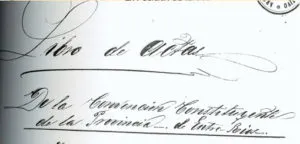 Libro de Actas
De la Convención Constituyente
de la Provincia de Entre Ríos.